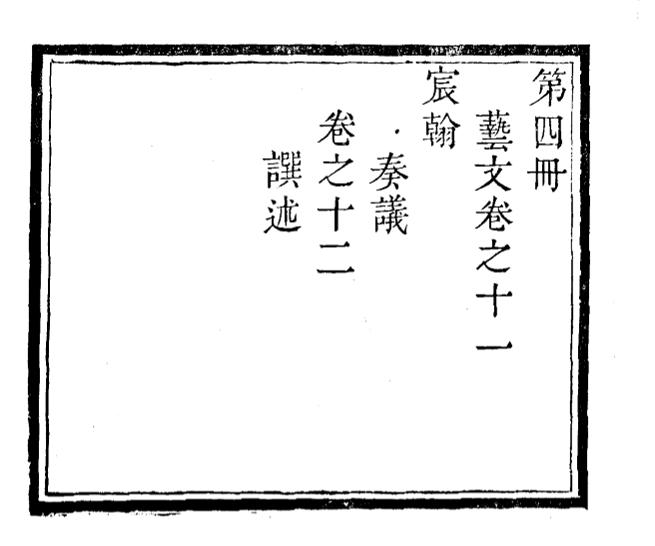 第四冊
藝文卷之十一
宸翰
奏議
卷之十二
譔述